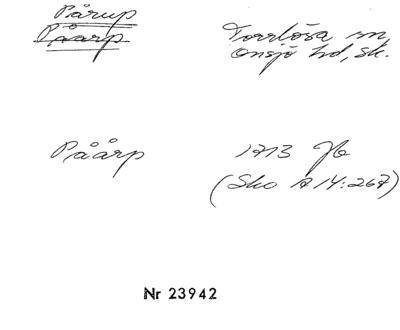 Pårup
Påarp
Torrlösa sn,
Onsjö hd, Sk.
Påårp
1713 Jb
(Sko A 14:267)
Nr 23942